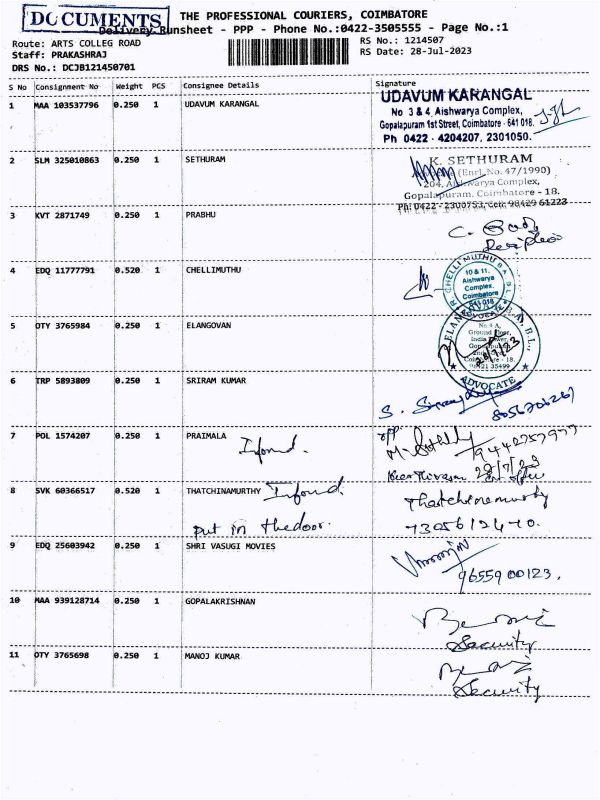 DOCUMENTS
THE PROFESSIONAL COURIERS, COIMBATORE
Delivery Runsheet - PPP - Phone No.:0422-3505555 - Page No.:1
Route: ARTS COLLEG ROAD
Staff: PRAKASHRAJ
DRS No.: DCJB121450701
RS No.: 1214507
RS Date: 28-Jul-2023
S No Consignment No Weight PCS Consignee Details Signature
1 MAA 103537796 0.250 1 UDAVUM KARANGAL
UDAVUM KARANGAL
No 3 & 4, Aishwarya Complex,
Gopalapuram 1st Street, Coimbatore - 641 018.
Ph 0422 - 4204207, 2301050.
2 SLM 325010863 0.250 1 SETHURAM
K. SETHURAM
(Enrl. No. 47/1990)
204, Aishwarya Complex,
Gopalapuram, Coimbatore - 18.
Ph: 0422 - 2300753, Cell: 98429 61223
3 KVT 2871749 0.250 1 PRABHU
4 EDQ 11777791 0.520 1 CHELLIMUTHU
CHELLI MUTHU B.A. B.L.
10 & 11,
Aishwarya
Complex,
Coimbatore
641 018
ADVOCATE
5 OTY 3765984 0.250 1 ELANGOVAN
No.4 A,
Ground Floor,
28/7/23
98421 35499
ADVOCATE
6 TRP 5893809 0.250 1 SRIRAM KUMAR
8056206267
7 POL 1574207 0.250 1 PRAIMALA
Infomd.
9442757977
28/7/23
8 SVK 60366517 0.520 1 THATCHINAMURTHY Infomd.
put in thedoor.
Thatchinamurthy
7305612470.
9 EDQ 25603942 0.250 1 SHRI VASUGI MOVIES
9655900123.
10 MAA 939128714 0.250 1 GOPALAKRISHNAN
Security
11 OTY 3765698 0.250 1 MANOJ KUMAR
Security